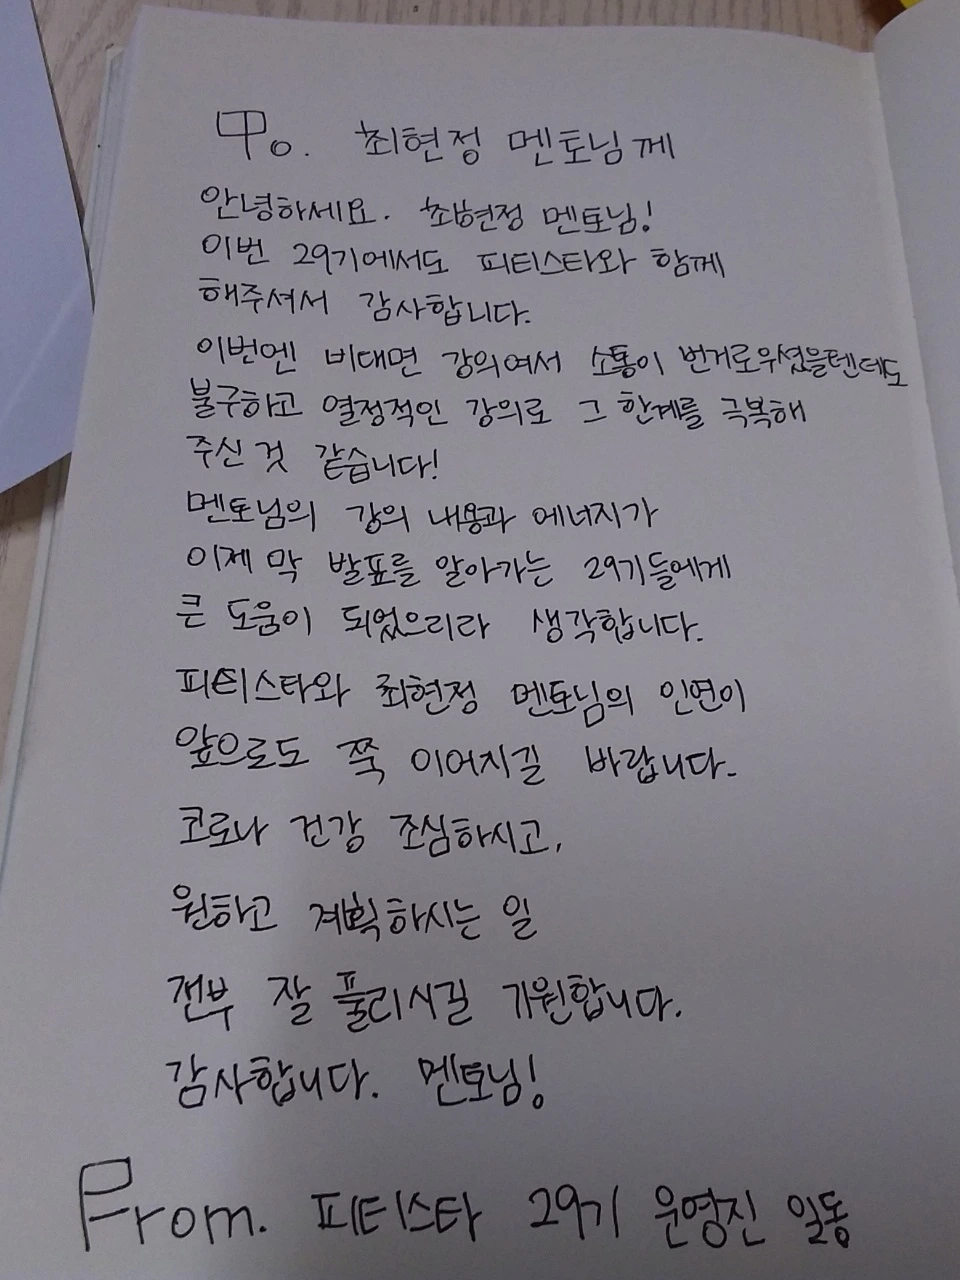 To. 최현정 멘토님께
안녕하세요. 최현정 멘토님!
이번 29기에서도 피티스타와 함께
해주셔서 감사합니다.
이번엔 비대면 강의여서 소통이 번거로우셨을텐데도
불구하고 열정적인 강의로 그 한계를 극복해
주신 것 같습니다!
멘토님의 강의 내용과 에너지가
이제 막 발표를 알아가는 29기들에게
큰 도움이 되었으리라 생각합니다.
피티스타와 최현정 멘토님의 인연이
앞으로도 쭉 이어지길 바랍니다.
코로나 건강 조심하시고,
원하고 계획하시는 일
전부 잘 풀리시길 기원합니다.
감사합니다. 멘토님!
From. 피티스타 29기 운영진 일동